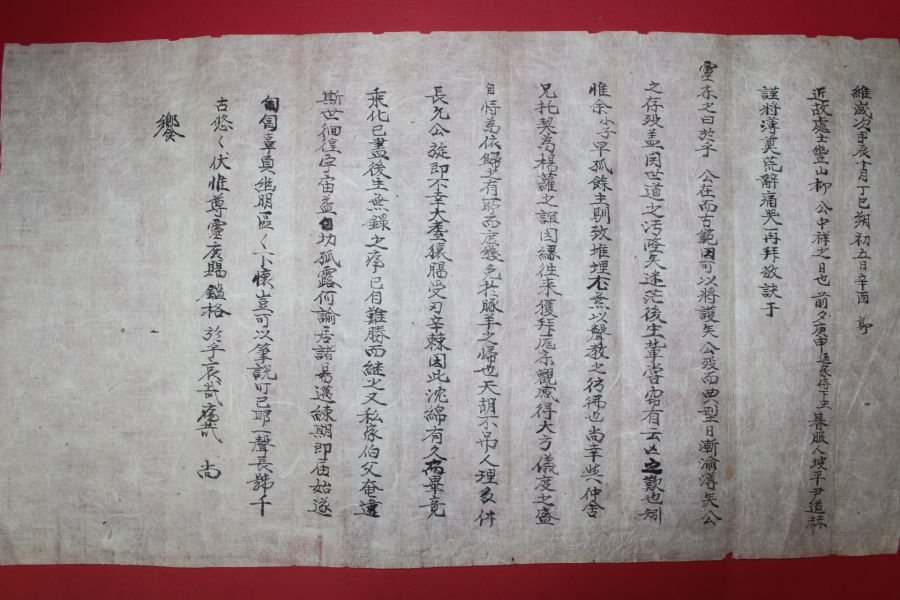 維歲次甲辰十月丁巳朔初五日辛酉 卽
近故處士豊山柳 公中祥之日也前夕庚申通家侍下生朞服人坡平尹道
謹將薄奠荒辭痛哭再拜敬訣于
靈柩之日於乎 公在而古範因可以將護矣公歿而典型日漸渝薄矣公
之存歿盖因世道之汚隆矣迷茫後生輩當有云亡之歎也矧
惟余小子早孤餘生馴致堆埋不無以聲敎之彷彿也尚幸與仲舍
兄托契為楊蘿之誼因緣往來獲拜床觀感得大方儀度之盛
自恃為依歸之有所而庶幾免於豚羊之歸也天胡不吊人理多倂
長允公旋即不幸大耋猿膓受刃辛棘因此沈綿有久畢竟
乘化已盡後生無祿之痛已自難勝而繼之又私家伯父奄違
斯世徊徨宇宙益自功孤露何論居諸易邁練期即届始遂
匍匐辜負幽明區〻下懷豈可以筆說可已耶一聲長號千
古悠〻伏惟尊靈庶賜鑑格於乎哀哉痛哉 尚
饗